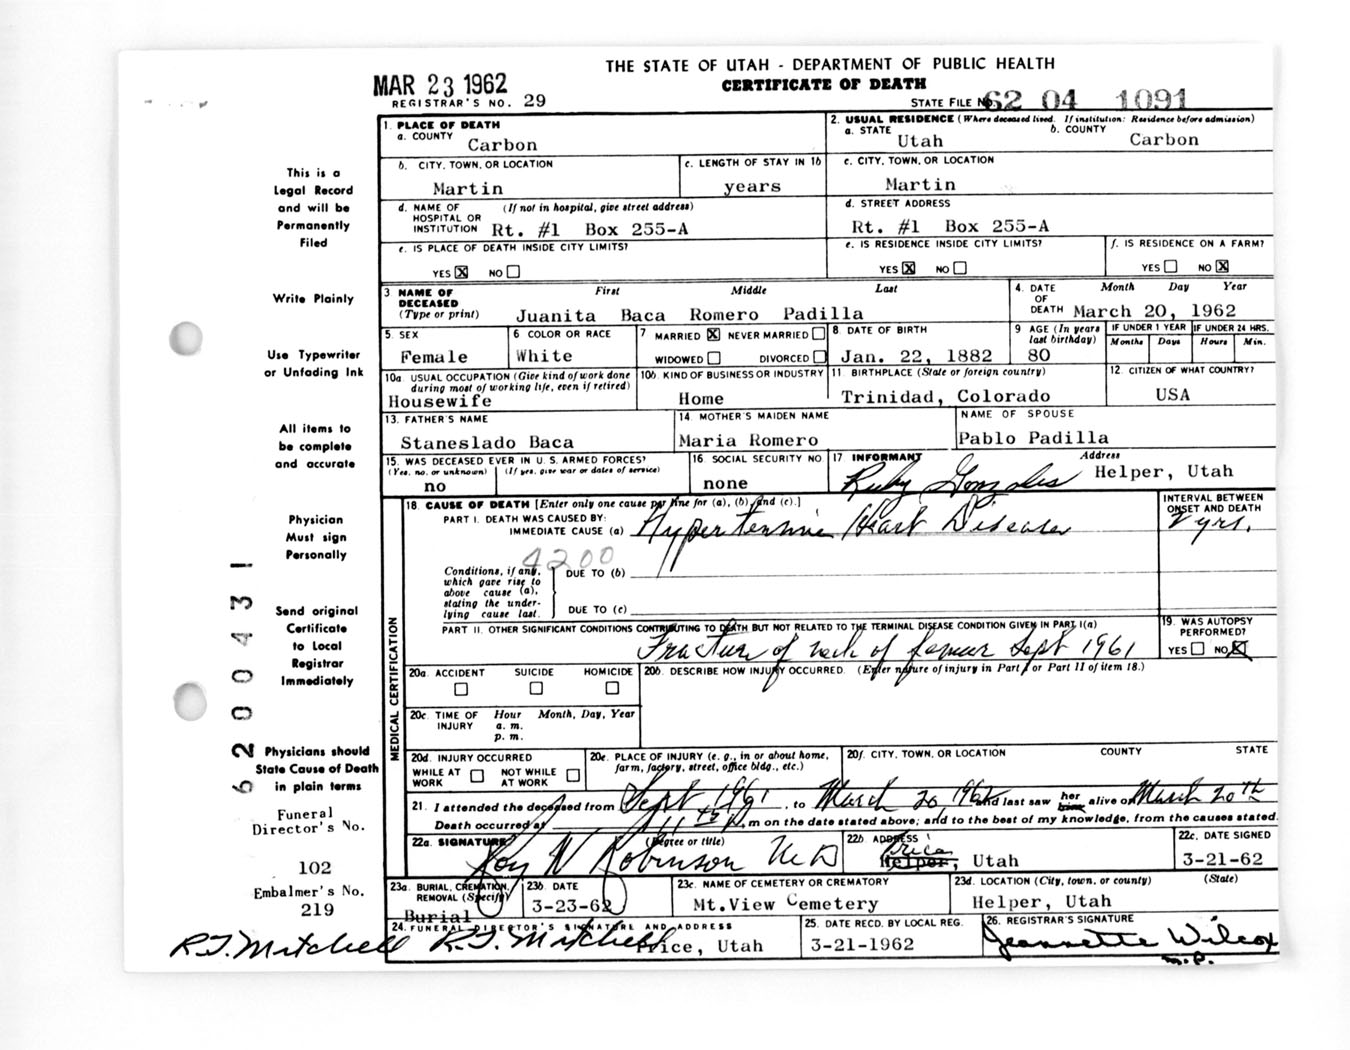 THE STATE OF UTAH - DEPARTMENT OF PUBLIC HEALTH
CERTIFICATE OF DEATH
MAR 23 1962
REGISTRAR'S NO. 29
STATE FILE NO. 62 04 1091
This is a
Legal Record
and will be
Permanently
Filed
Write Plainly
Use Typewriter
or Unfading Ink
All items to
be complete
and accurate
Physician
Must sign
Personally
Send original
Certificate
to Local
Registrar
Immediately
Physicians should
State Cause of Death
in plain terms
Funeral
Director's No.
102
Embalmer's No.
219
R.T. Mitchell
62 00431
1. PLACE OF DEATH
a. COUNTY
Carbon
2. USUAL RESIDENCE (Where deceased lived. If institution: Residence before admission)
a. STATE Utah b. COUNTY Carbon
b. CITY, TOWN, OR LOCATION
Martin
c. LENGTH OF STAY IN 1b
years
c. CITY, TOWN, OR LOCATION
Martin
d. NAME OF HOSPITAL OR INSTITUTION (If not in hospital, give street address)
Rt. #1 Box 255-A
d. STREET ADDRESS
Rt. #1 Box 255-A
e. IS PLACE OF DEATH INSIDE CITY LIMITS?
YES ☒ NO ☐
e. IS RESIDENCE INSIDE CITY LIMITS?
YES ☒ NO ☐
f. IS RESIDENCE ON A FARM?
YES ☐ NO ☒
3 NAME OF DECEASED (Type or print) First Middle Last
Juanita Baca Romero Padilla
4. DATE OF DEATH Month Day Year
March 20, 1962
5. SEX
Female
6 COLOR OR RACE
White
7 MARRIED ☒ NEVER MARRIED ☐
WIDOWED ☐ DIVORCED ☐
8. DATE OF BIRTH
Jan. 22, 1882
9 AGE (In years last birthday)
80
IF UNDER 1 YEAR
Months Days
IF UNDER 24 HRS.
Hours Min.
10a. USUAL OCCUPATION (Give kind of work done during most of working life, even if retired)
Housewife
10b. KIND OF BUSINESS OR INDUSTRY
Home
11 BIRTHPLACE (State or foreign country)
Trinidad, Colorado
12. CITIZEN OF WHAT COUNTRY?
USA
13. FATHER'S NAME
Staneslado Baca
14. MOTHER'S MAIDEN NAME
Maria Romero
NAME OF SPOUSE
Pablo Padilla
15. WAS DECEASED EVER IN U.S. ARMED FORCES?
(Yes, no, or unknown) (If yes, give war or dates of service)
no
16. SOCIAL SECURITY NO.
none
17 INFORMANT Address
Ruby Gonzales Helper, Utah
18. CAUSE OF DEATH [Enter only one cause per line for (a), (b), and (c).]
PART I. DEATH WAS CAUSED BY:
IMMEDIATE CAUSE (a) Hypertensive Heart Disease
INTERVAL BETWEEN ONSET AND DEATH
2 yrs.
4200
Conditions, if any, which gave rise to above cause (a), stating the underlying cause last.
DUE TO (b)
DUE TO (c)
PART II. OTHER SIGNIFICANT CONDITIONS CONTRIBUTING TO DEATH BUT NOT RELATED TO THE TERMINAL DISEASE CONDITION GIVEN IN PART I(a)
Fracture of neck of femur Sept 1961
19. WAS AUTOPSY PERFORMED?
YES ☐ NO ☒
MEDICAL CERTIFICATION
20a. ACCIDENT SUICIDE HOMICIDE
☐ ☐ ☐
20b. DESCRIBE HOW INJURY OCCURRED. (Enter nature of injury in Part I or Part II of item 18.)
20c. TIME OF INJURY Hour Month, Day, Year
a. m.
p. m.
20d. INJURY OCCURRED
WHILE AT WORK ☐ NOT WHILE AT WORK ☐
20e. PLACE OF INJURY (e. g., in or about home, farm, factory, street, office bldg., etc.)
20f. CITY, TOWN, OR LOCATION COUNTY STATE
21. I attended the deceased from Sept 1961, to March 20, 1962 and last saw her him alive on March 20th
Death occurred at m on the date stated above; and to the best of my knowledge, from the causes stated.
22a. SIGNATURE (Degree or title)
Roy W Robinson M D
22b ADDRESS
Price
Helper, Utah
22c. DATE SIGNED
3-21-62
23a. BURIAL, CREMATION, REMOVAL (Specify)
Burial
23b. DATE
3-23-62
23c. NAME OF CEMETERY OR CREMATORY
Mt.View Cemetery
23d. LOCATION (City, town, or county) (State)
Helper, Utah
24. FUNERAL DIRECTOR'S SIGNATURE AND ADDRESS
R.T. Mitchell Price, Utah
25. DATE RECD. BY LOCAL REG.
3-21-1962
26. REGISTRAR'S SIGNATURE
Jeannette Wilcox